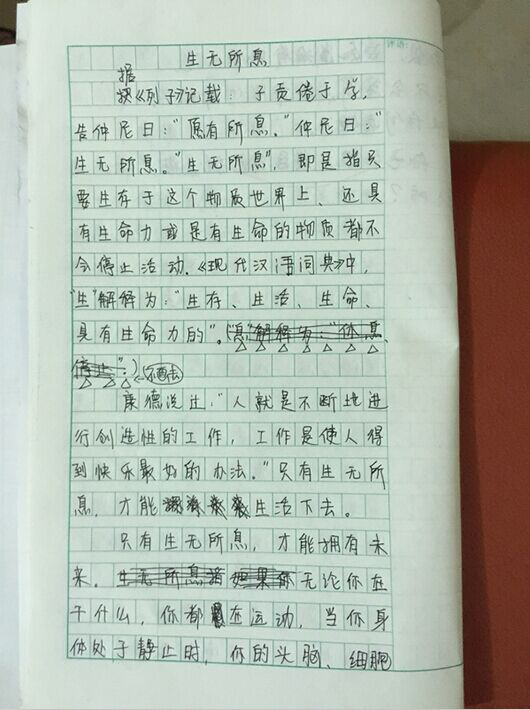 生无所息
据
《列子》记载：子贡倦于学，
告仲尼曰："愿有所息。"仲尼曰："
生无所息。"生无所息"，即是指只
要生存于这个物质世界上、还具
有生命力或是有生命的物质都不
会停止活动。《现代汉语词典》中，
"生"解释为："生存、生活、生命、
具有生命力的"。（"息"解释为："休息、
停止"。）不删去
康德说过："人就是不断地进
行创造性的工作，工作是使人得
到快乐最好的办法。"只有生无所
息，才能生活下去。
只有生无所息，才能拥有未
来。生无所息 如果你无论你在
干什么，你都在运动，当你身
体处于静止时，你的头脑、细胞